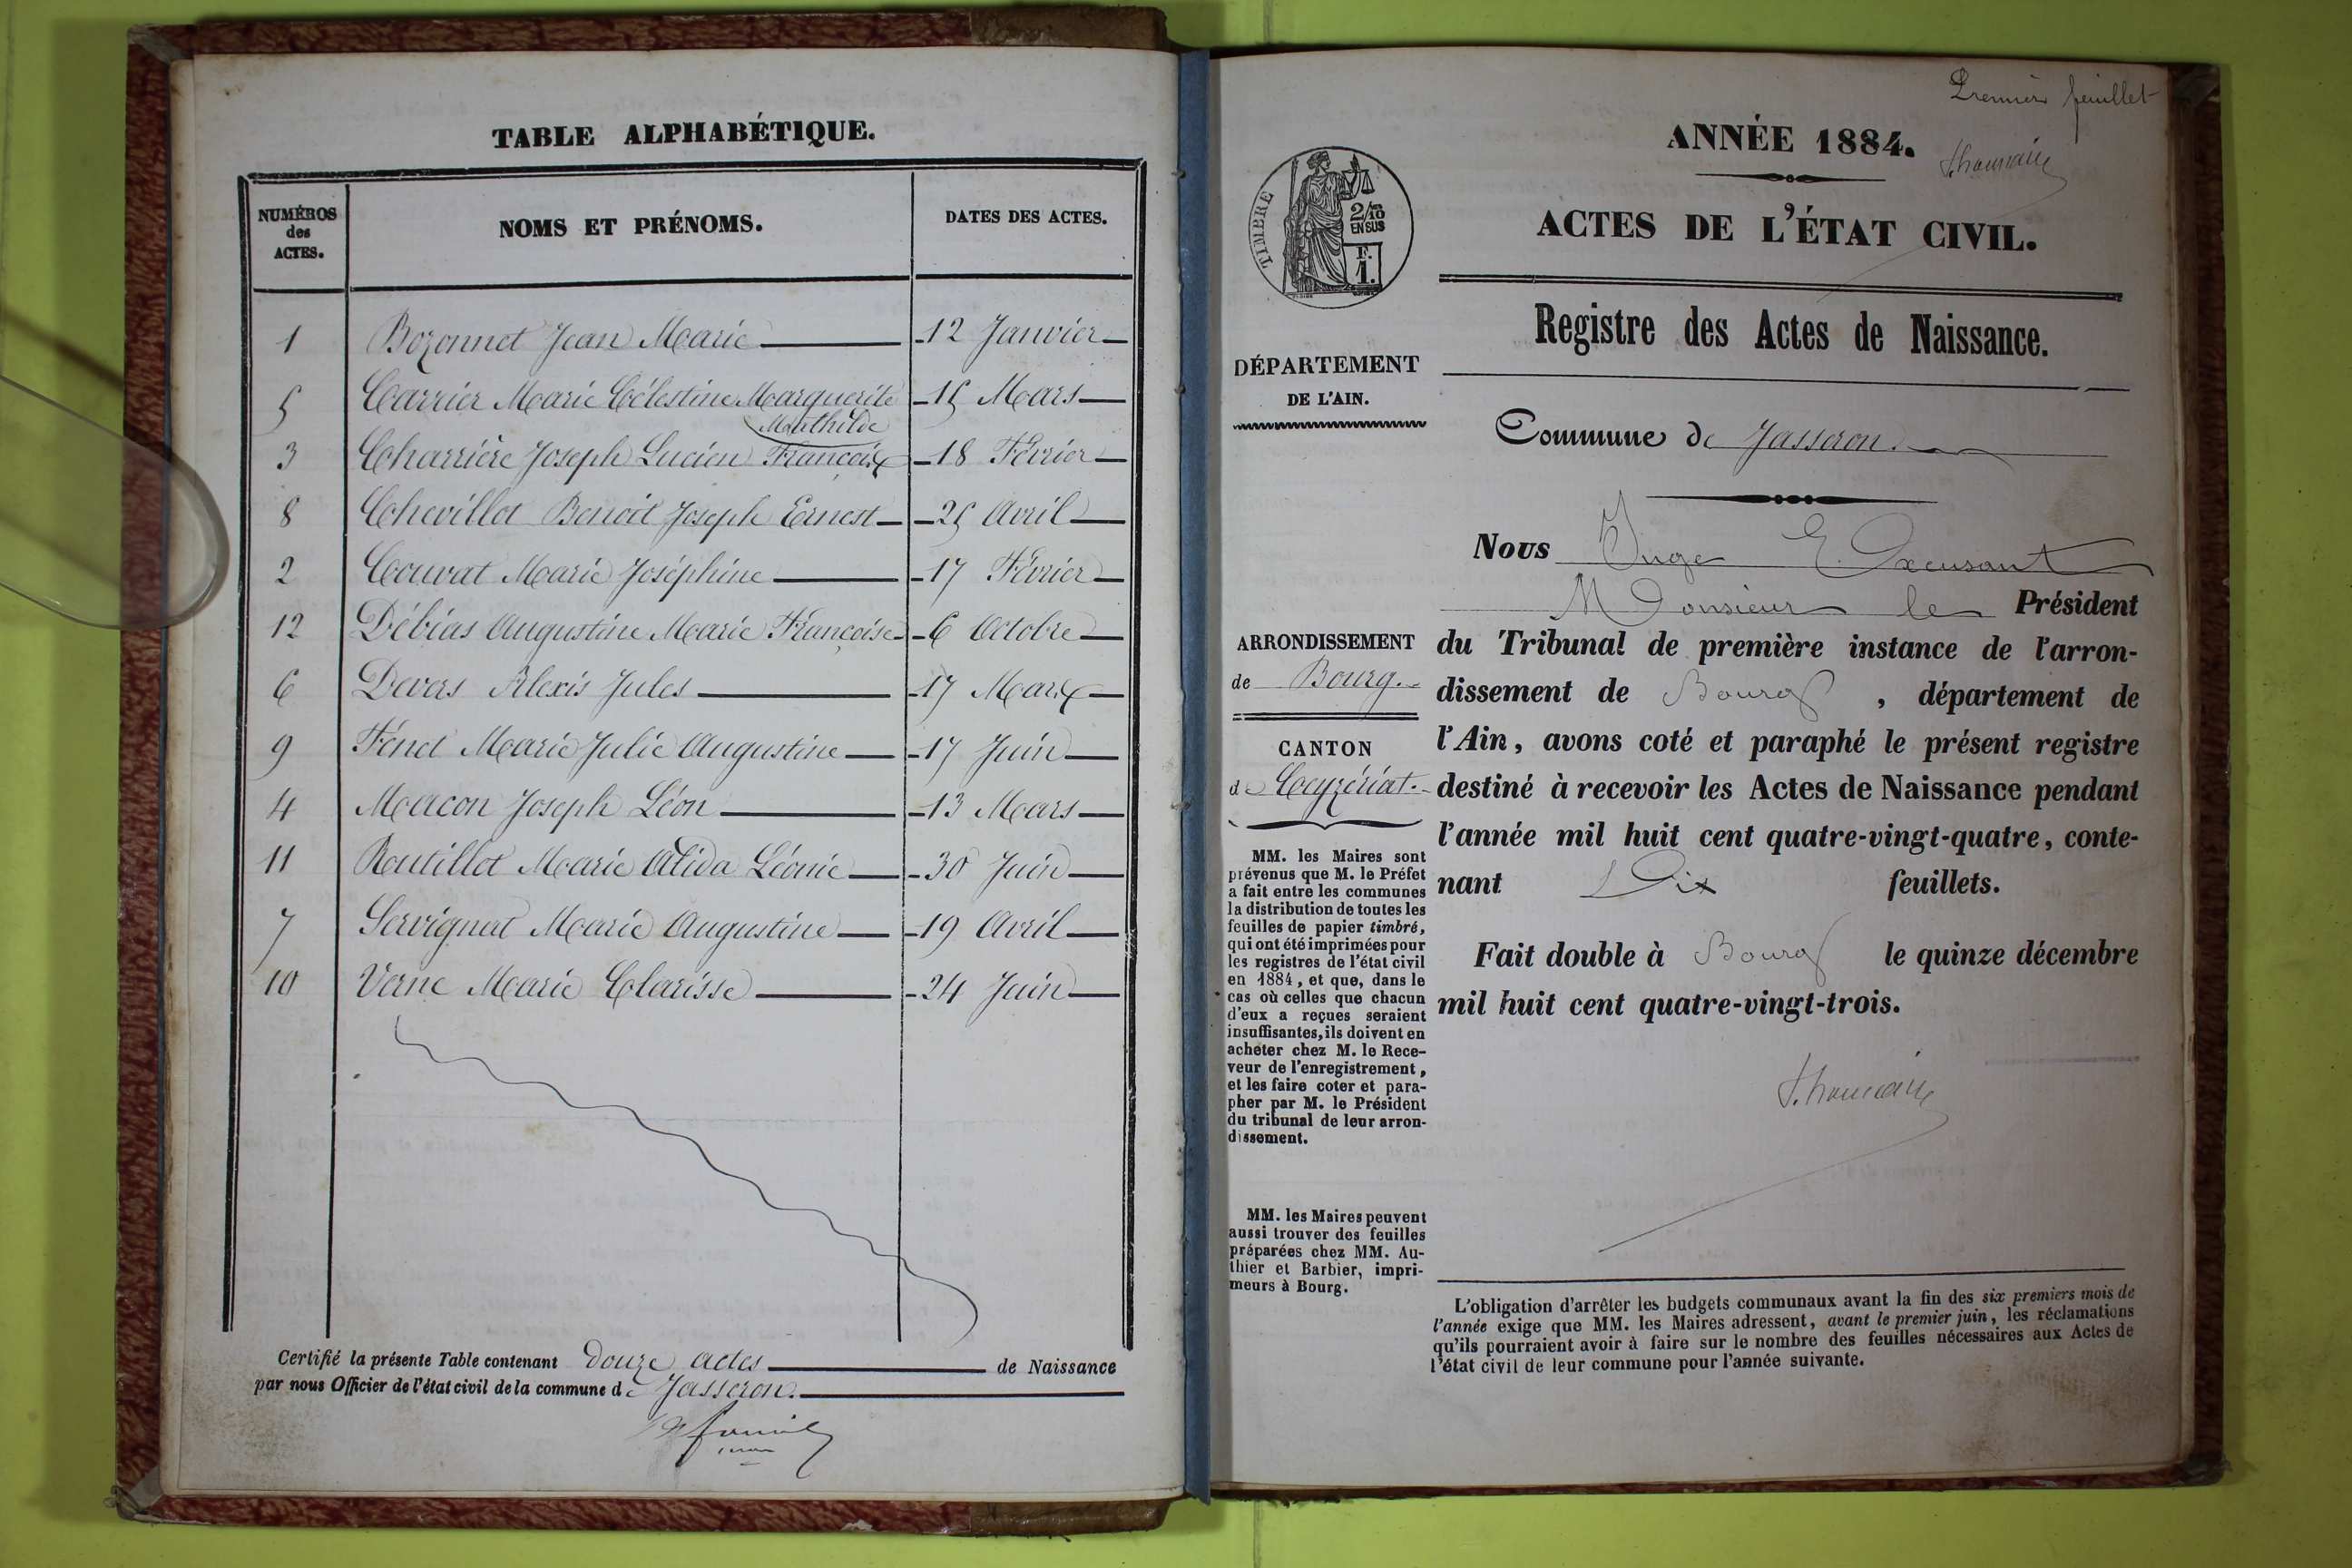 TABLE ALPHABÉTIQUE.
NUMÉROS des ACTES. NOMS ET PRÉNOMS. DATES DES ACTES.
1 Bozonnet Jean Marie 12 Janvier
5 Carrier Marie Célestine Marguerite 15 Mars
Mathilde
3 Charrière Joseph Lucien François 18 Février
8 Chevillot Benoit Joseph Ernest 25 Avril
2 Couvat Marie Joséphine 17 Février
12 Débias Augustine Marie Françoise 6 Octobre
6 Devers Alexis Jules 17 Mars
9 Fénet Marie Julie Augustine 17 Juin
4 Macon Joseph Léon 13 Mars
11 Routillot Marie Alida Léonie 30 Juin
7 Servignat Marie Augustine 19 Avril
10 Verne Marie Clarisse 24 Juin
Certifié la présente Table contenant douze actes de Naissance
par nous Officier de l'état civil de la commune de Jasseron.
Premier feuillet
ANNÉE 1884.
ACTES DE L'ÉTAT CIVIL.
TIMBRE
2/10
EN SUS
F.
1.
Registre des Actes de Naissance.
Commune de Jasseron.
DÉPARTEMENT
DE L'AIN.
ARRONDISSEMENT
de Bourg.
CANTON
de Ceyzériat.
MM. les Maires sont
prévenus que M. le Préfet
a fait entre les communes
la distribution de toutes les
feuilles de papier timbré,
qui ont été imprimées pour
les registres de l'état civil
en 1884, et que, dans le
cas où celles que chacun
d'eux a reçues seraient
insuffisantes, ils doivent en
acheter chez M. le Rece-
veur de l'enregistrement,
et les faire coter et para-
pher par M. le Président
du tribunal de leur arron-
dissement.
MM. les Maires peuvent
aussi trouver des feuilles
préparées chez MM. Au-
thier et Barbier, impri-
meurs à Bourg.
Nous Juge
Monsieur le Président
du Tribunal de première instance de l'arron-
dissement de Bourg, département de
l'Ain, avons coté et paraphé le présent registre
destiné à recevoir les Actes de Naissance pendant
l'année mil huit cent quatre-vingt-quatre, conte-
nant Dix feuillets.
Fait double à Bourg le quinze décembre
mil huit cent quatre-vingt-trois.
L'obligation d'arrêter les budgets communaux avant la fin des six premiers mois de
l'année exige que MM. les Maires adressent, avant le premier juin, les réclamations
qu'ils pourraient avoir à faire sur le nombre des feuilles nécessaires aux Actes de
l'état civil de leur commune pour l'année suivante.